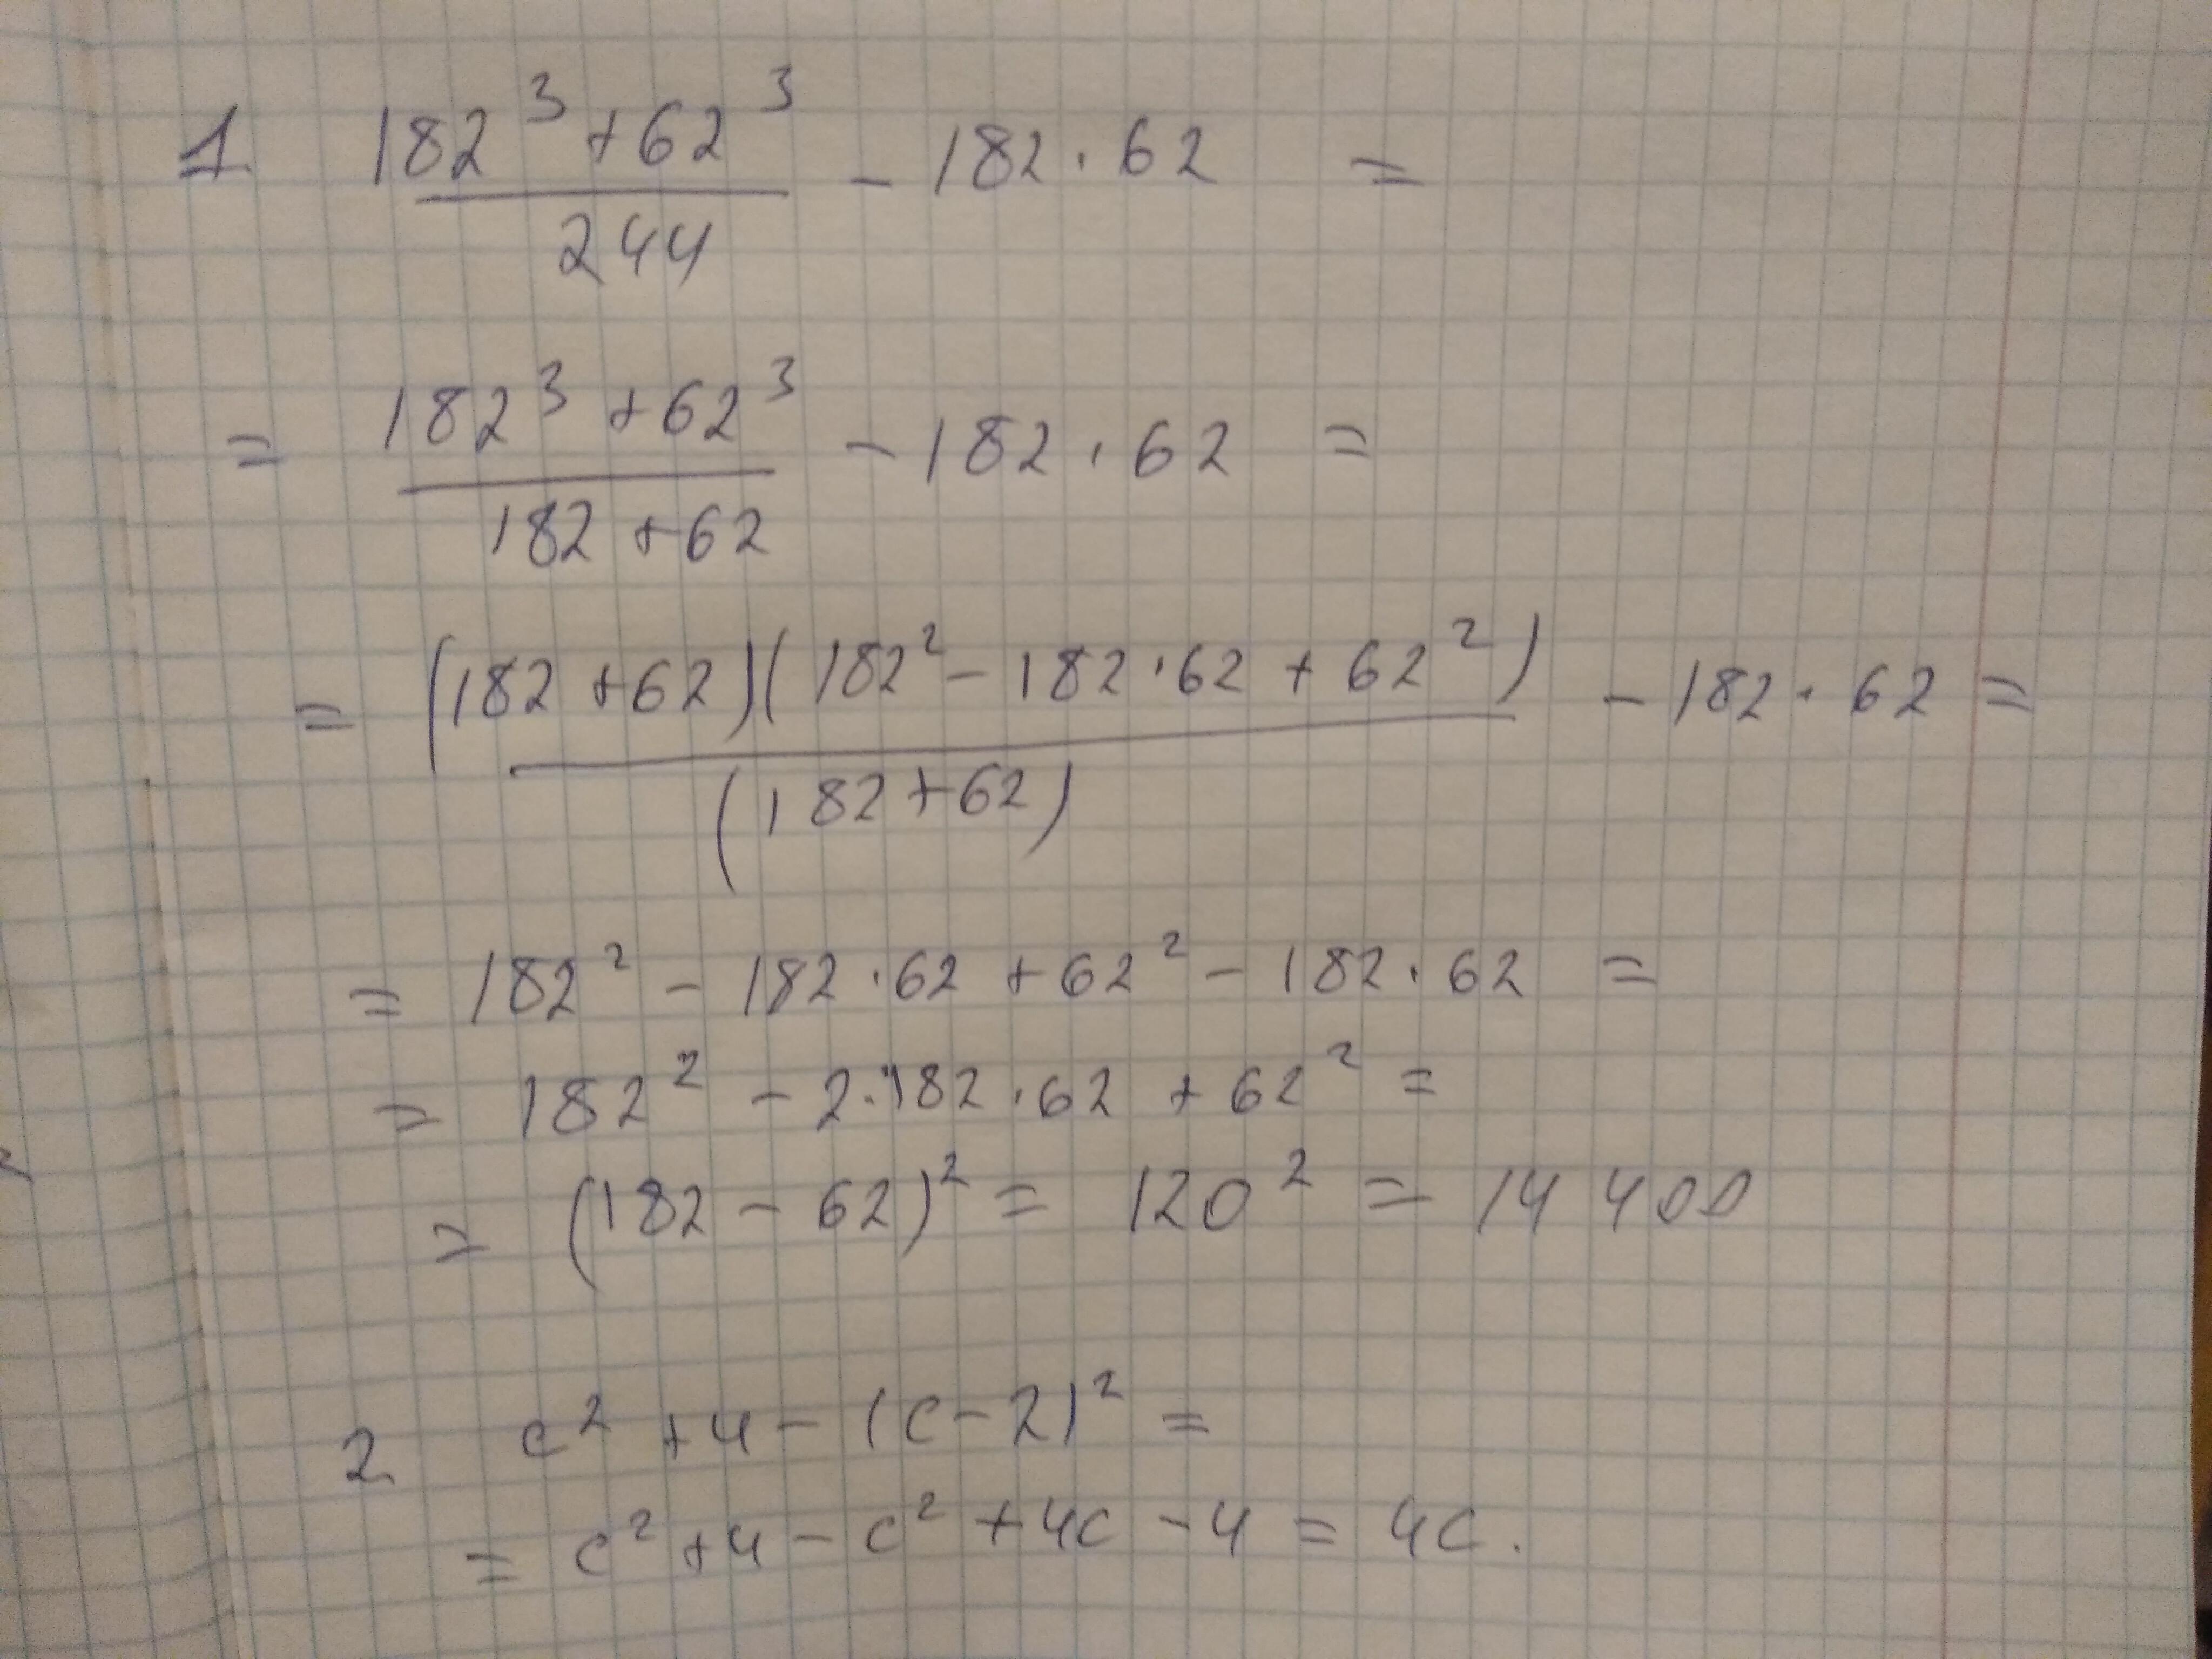 1 182³+62³/244 - 182·62 =
= 182³+62³/182+62 - 182·62 =
= (182+62)(182² - 182·62 + 62²)/(182+62) - 182·62 =
= 182² - 182·62 + 62² - 182·62 =
= 182² - 2·182·62 + 62² =
= (182 - 62)² = 120² = 14 400
2 c² + 4 - (c - 2)² =
= c² + 4 - c² + 4c - 4 = 4c.